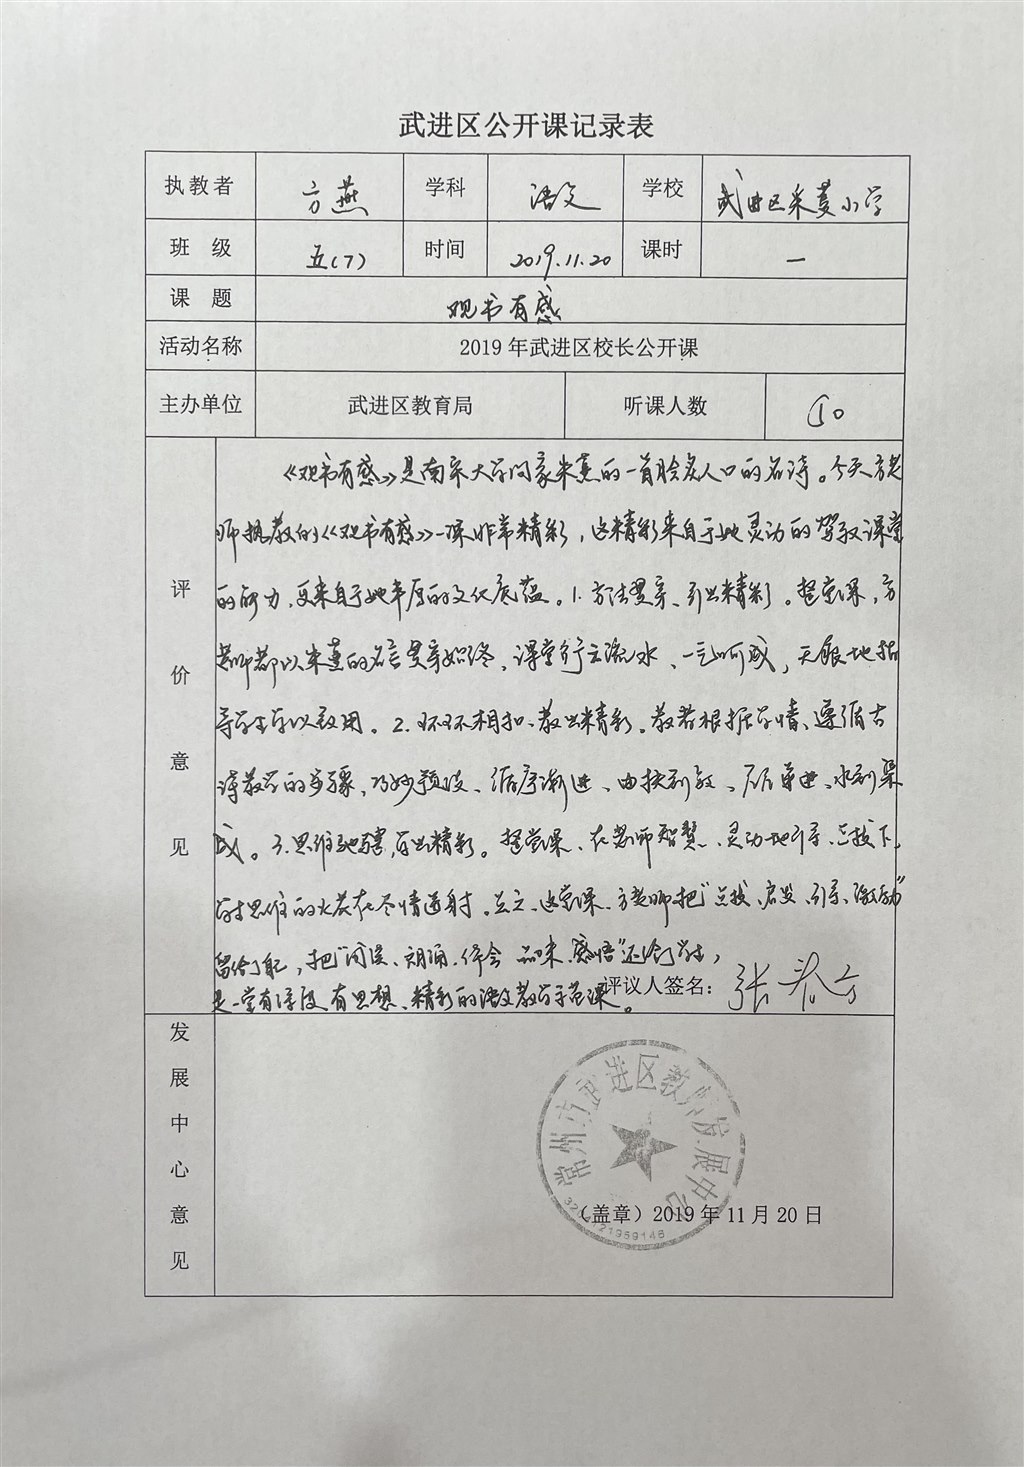 武进区公开课记录表
执教者 方燕 学科 语文 学校 武进区采菱小学
班级 五(7) 时间 2019.11.20 课时 一
课题 观书有感
活动名称 2019年武进区校长公开课
主办单位 武进区教育局 听课人数 50
评价意见
《观书有感》是南宋大学问家朱熹的一首脍炙人口的名诗。今天方老
师执教的《观书有感》一课非常精彩，这精彩来自于她灵动的驾驭课堂
的能力，更来自于她丰厚的文化底蕴。1.方法贯穿、引出精彩。整堂课，方
老师都以朱熹的名言贯穿始终，课堂行云流水、一气呵成，无痕地指
导学生学以致用。2.环环相扣、教出精彩。教者根据学情、遵循古
诗教学的步骤，巧妙预设、循序渐进、由扶到放、层层递进、水到渠
成。3.思维驰骋，学出精彩。整堂课、在老师智慧、灵动地引导、点拨下，
学生思维的火花在尽情迸射。总之、这堂课、方老师把“点拨、启发、引导、激励”
留给了自己，把“阅读、朗诵、体会、品味、感悟”还给了学生，
是一堂有深度、有思想、精彩的语文教学示范课。
评议人签名：张
发展中心意见
常州市武进区教师发展中心
（盖章）2019年11月20日